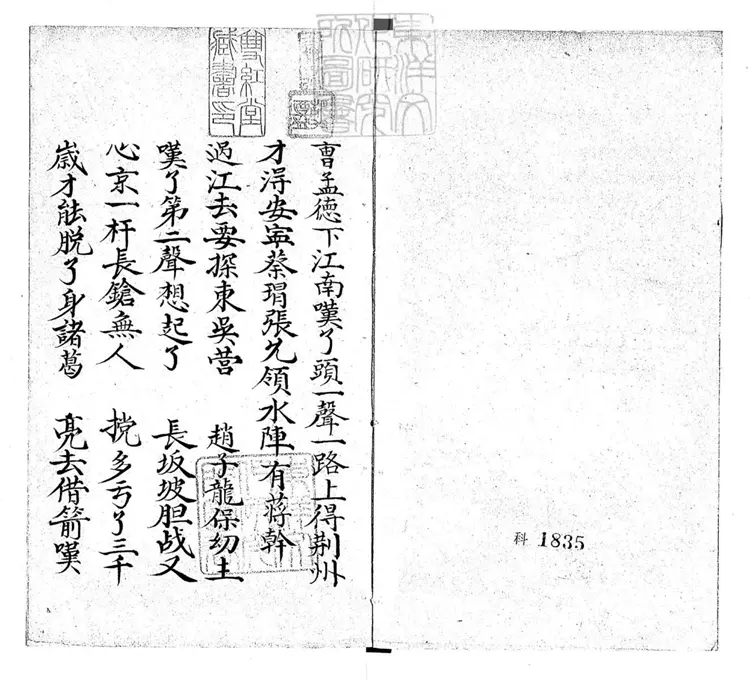 曹孟德下江南嘆了頭一聲一路上得荆州
才淂安寍蔡瑁張允領水陣有蔣幹
过江去要探東吳营　趙子龍保幼主
嘆了第二聲想起了　長坂坡胆战又
心京一杆長鎗無人　攩多亏了三千
嵗才能脱了身諸葛　亮去借箭嘆
雙紅堂
藏書印
科 1835